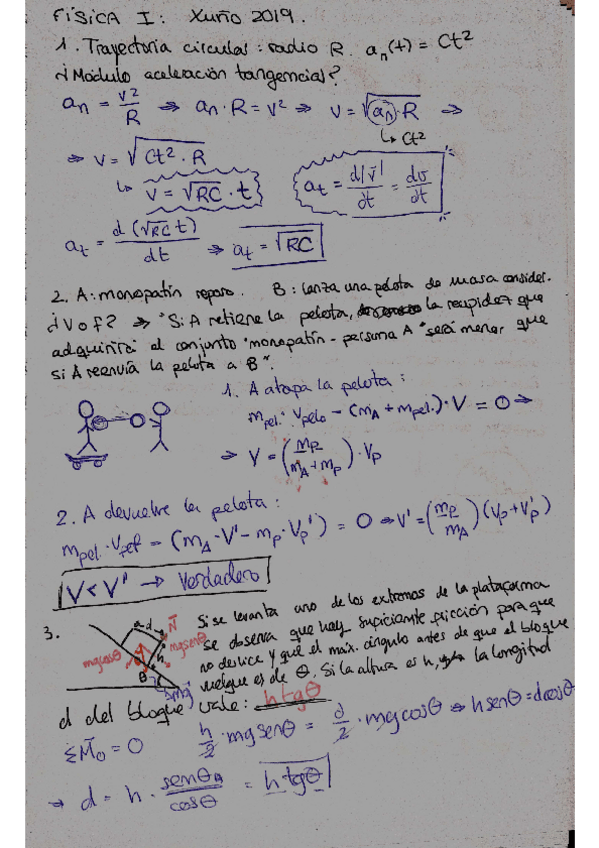 FÍSICA I: Xuño 2019.
1. Trayectoria circular: radio R. aₙ(t) = Ct²
¿Módulo aceleración tangencial?
aₙ = v²/R ⇒ aₙ·R = v² ⇒ v = √(aₙ·R) ⇒
↳ Ct²
⇒ v = √(Ct²·R)
↳ v = √RC · t
aₜ = d|v⃗|/dt = dv/dt
aₜ = d(√RC t)/dt ⇒ aₜ = √RC
2. A: monopatín reposo. B: lanza una pelota de masa consider.
¿V o F? ⇒ "Si A retiene la pelota, la rapidez que
adquirirá el conjunto "monopatín - persona A" será menor que
si A reenvía la pelota a B".
1. A atapa la pelota:
m_pel. · V_pelo - (m_A + m_pel.)·V = 0 ⇒
⇒ V = (m_p/(m_A+m_p)) · V_p
2. A devuelve la pelota:
m_pel · V_pel - (m_A · V' - m_p · V_p') = 0 ⇒ V' = (m_p/m_A)(V_p + V_p')
V < V' → Verdadero
3.
d
N⃗
mg senθ
mg cosθ
h
B
mg⃗
Si se levanta uno de los extremos de la plataforma
se observa que hay suficiente fricción para que
no deslice y que el máx. ángulo antes de que el bloque
vuelque es de θ. Si la altura es h, la longitud
d del bloque vale: h tgθ
ΣM⃗₀ = 0 h/2 · mg senθ = d/2 · mg cosθ ⇒ h senθ = d cosθ
⇒ d = h · senθ/cosθ = h tgθ